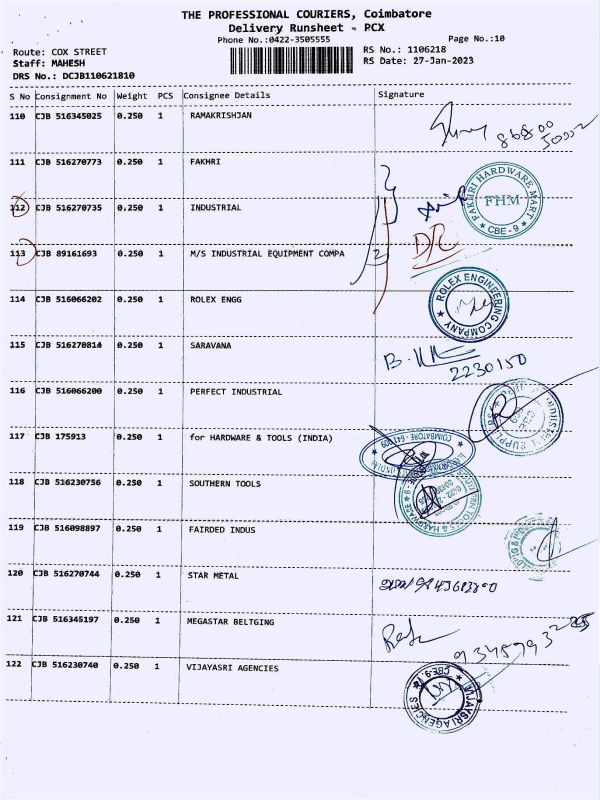 THE PROFESSIONAL COURIERS, Coimbatore
Delivery Runsheet - PCX
Phone No.:0422-3505555
Page No.:10
Route: COX STREET
RS No.: 1106218
Staff: MAHESH
RS Date: 27-Jan-2023
DRS No.: DCJB110621810
S No Consignment No Weight PCS Consignee Details Signature
110 CJB 516345025 0.250 1 RAMAKRISHJAN
111 CJB 516270773 0.250 1 FAKHRI
FAKHRI HARDWARE MART
FHM
★ CBE - 9 ★
112 CJB 516270735 0.250 1 INDUSTRIAL
D/R
113 CJB 89161693 0.250 1 M/S INDUSTRIAL EQUIPMENT COMPA
114 CJB 516066202 0.250 1 ROLEX ENGG
ROLEX ENGINEERING COMPANY ★
115 CJB 516270814 0.250 1 SARAVANA
2230150
116 CJB 516066200 0.250 1 PERFECT INDUSTRIAL
117 CJB 175913 0.250 1 for HARDWARE & TOOLS (INDIA)
118 CJB 516230756 0.250 1 SOUTHERN TOOLS
119 CJB 516098897 0.250 1 FAIRDED INDUS
120 CJB 516270744 0.250 1 STAR METAL
121 CJB 516345197 0.250 1 MEGASTAR BELTGING
122 CJB 516230740 0.250 1 VIJAYASRI AGENCIES
VIJAYSRI AGENCIES
★ CBE-9 ★